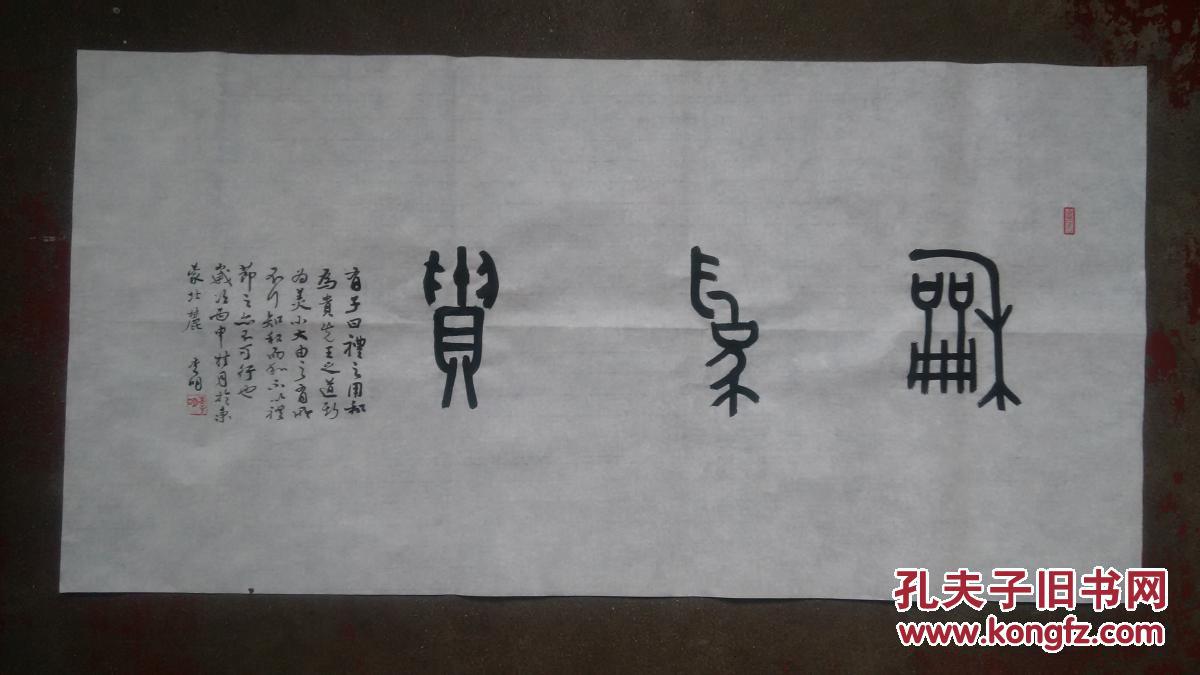 龢為貴
有子曰禮之用和
為貴先王之道斯
為美小大由之有所
不行知和而和不以禮
節之亦不可行也
歲次丙申桂月於東
蒙北麓
孔夫子旧书网
www.kongfz.com